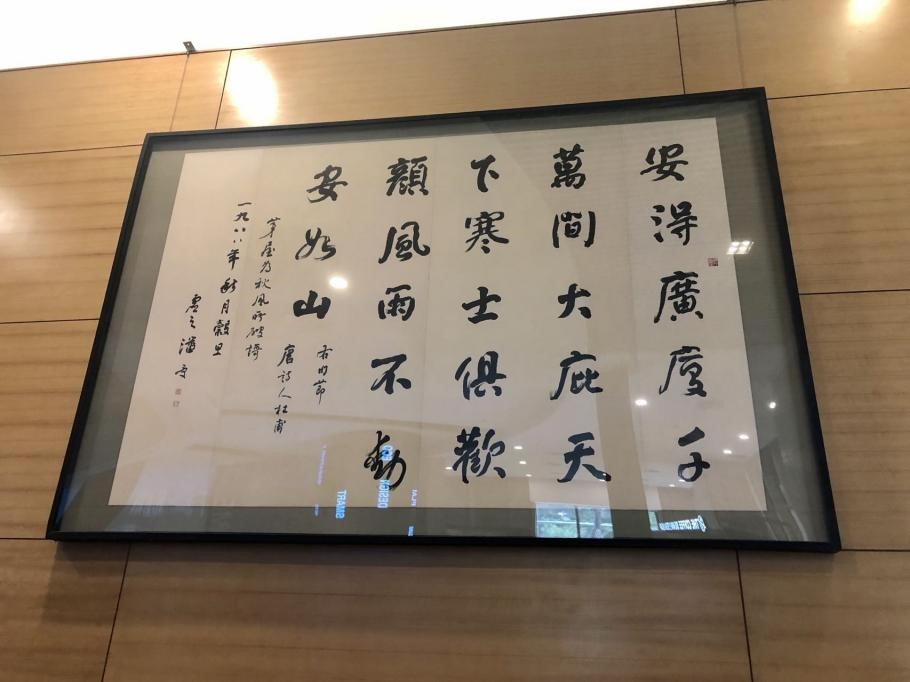 安得廣廈千
萬間大庇天
下寒士俱歡
顔風雨不動
安如山
唐詩人杜甫
茅屋為秋風所破
一九八八年秋月穀旦
虛之潘受